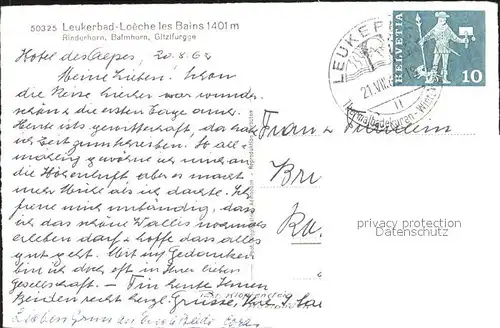 50325 Leukerbad-Loèche les Bains 1401 m
Rinderhorn, Balmhorn, Gitzifurgge
Hotel des Alpes, 20.8.6
Meine Lieben! Schon
die Reise hierher war wunder-
schön & die ersten Tage auch.
Heute ists gewitterhaft, das habe
ich Zeit zum schreiben. So all-
mählig gewöhne ich mich an
die Höhenluft aber es macht
mehr Mühe als ich dachte. Ich
freue mich unbändig, dass
ich das schöne Wallis nochmals
erleben darf & hoffe dass alles
gut geht. Mit den Gedanken
bin ich doch oft in Ihrer lieben
Gesellschaft. – Für heute Ihnen
Beiden recht herzl. Grüsse,
Lieben Gruss
LEUKER
21.VIII.6
Thermalbadekuren-Win
HELVETIA
10
Frau &
Bri
Ru
privacy protection
Datenschutz